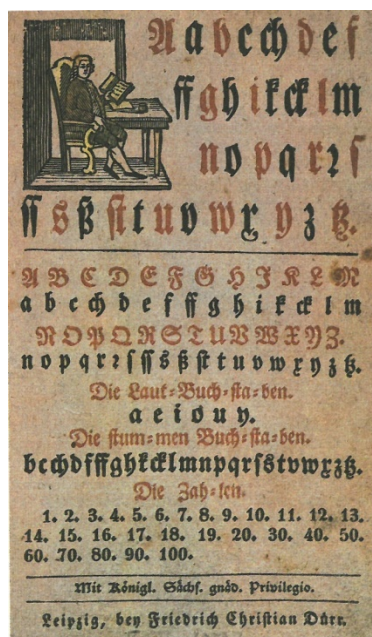 A a b c ch d e f
ff g h i k ck l m
n o p q r ꝛ ſ
ſſ s ß ſt t u v w x y z tz.
A B C D E F G H J K L M
a b c ch d e f ff g h i k ck l m
N O P Q R S T U V W X Y Z.
n o p q r ꝛ ſ ſſ s ß ſt t u v w x y z tz.
Die Laut⸗Buch⸗ſta⸗ben.
a e i o u y.
Die ſtum⸗men Buch⸗ſta⸗ben.
bcchdfffghkcklmnpqrſstvwxztz.
Die Zah⸗len.
1. 2. 3. 4. 5. 6. 7. 8. 9. 10. 11. 12. 13.
14. 15. 16. 17. 18. 19. 20. 30. 40. 50.
60. 70. 80. 90. 100.
Mit Königl. Sächſ. gnäd. Privilegio.
Leipzig, bey Friedrich Chriſtian Dürr.